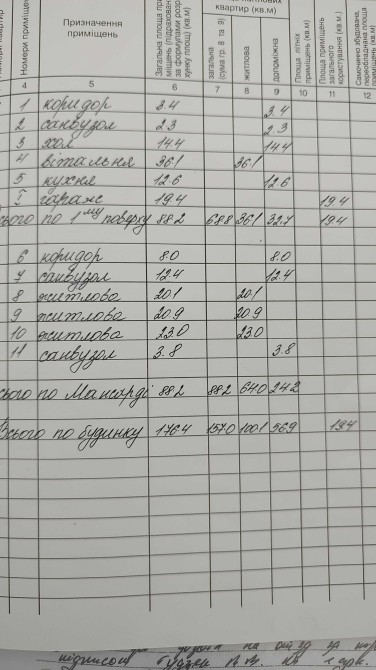 квартир (кв.м)
Номери приміщень Призначення приміщень Загальна площа загальна (сума гр. 8 та 9) житлова допоміжна Площа літніх приміщень (кв.м) Площа приміщень загального користування (кв.м.) Самочинно збудована, переобладнана площа приміщень (кв.м)
4 5 6 7 8 9 10 11 12
1 коридор 3.4 3.4
2 санвузол 2.3 2.3
3 хол 14.4 14.4
4 вітальня 36.1 36.1
5 кухня 12.6 12.6
I гараж 19.4 19.4
сього по 1му поверху 88.2 68.8 36.1 32.7 19.4
6 коридор 8.0 8.0
7 санвузол 12.4 12.4
8 житлова 20.1 20.1
9 житлова 20.9 20.9
10 житлова 23.0 23.0
11 санвузол 3.8 3.8
сього по Мансарді 88.2 88.2 64.0 24.2
Всього по будинку 176.4 157.0 100.1 56.9 19.4